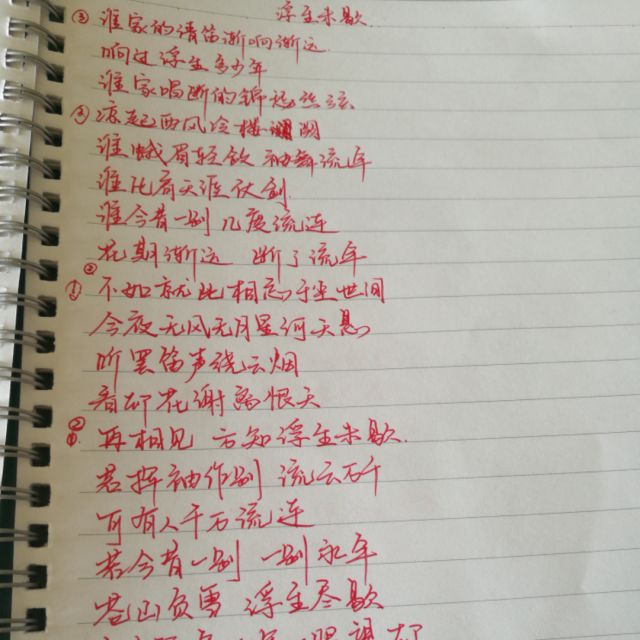 浮生未歇
③ 谁家的清笛渐响渐远
响过浮生多少年
谁家唱断的锦瑟丝弦
③ 凉起西风冷楼阑
谁蛾眉轻敛 袖舞流年
谁比肩天涯仗剑
谁今昔一别几度流连
花期渐远 断了流年
① 不如就此相忘于尘世间
今夜无风无月星河天悬
听罢笛声绕云烟
看却花谢离恨天
② 再相见 方知浮生未歇
若挥袖作别 流云万千
可有人千万流连
若今昔一别 一别永年
苍山负雪 浮生尽歇